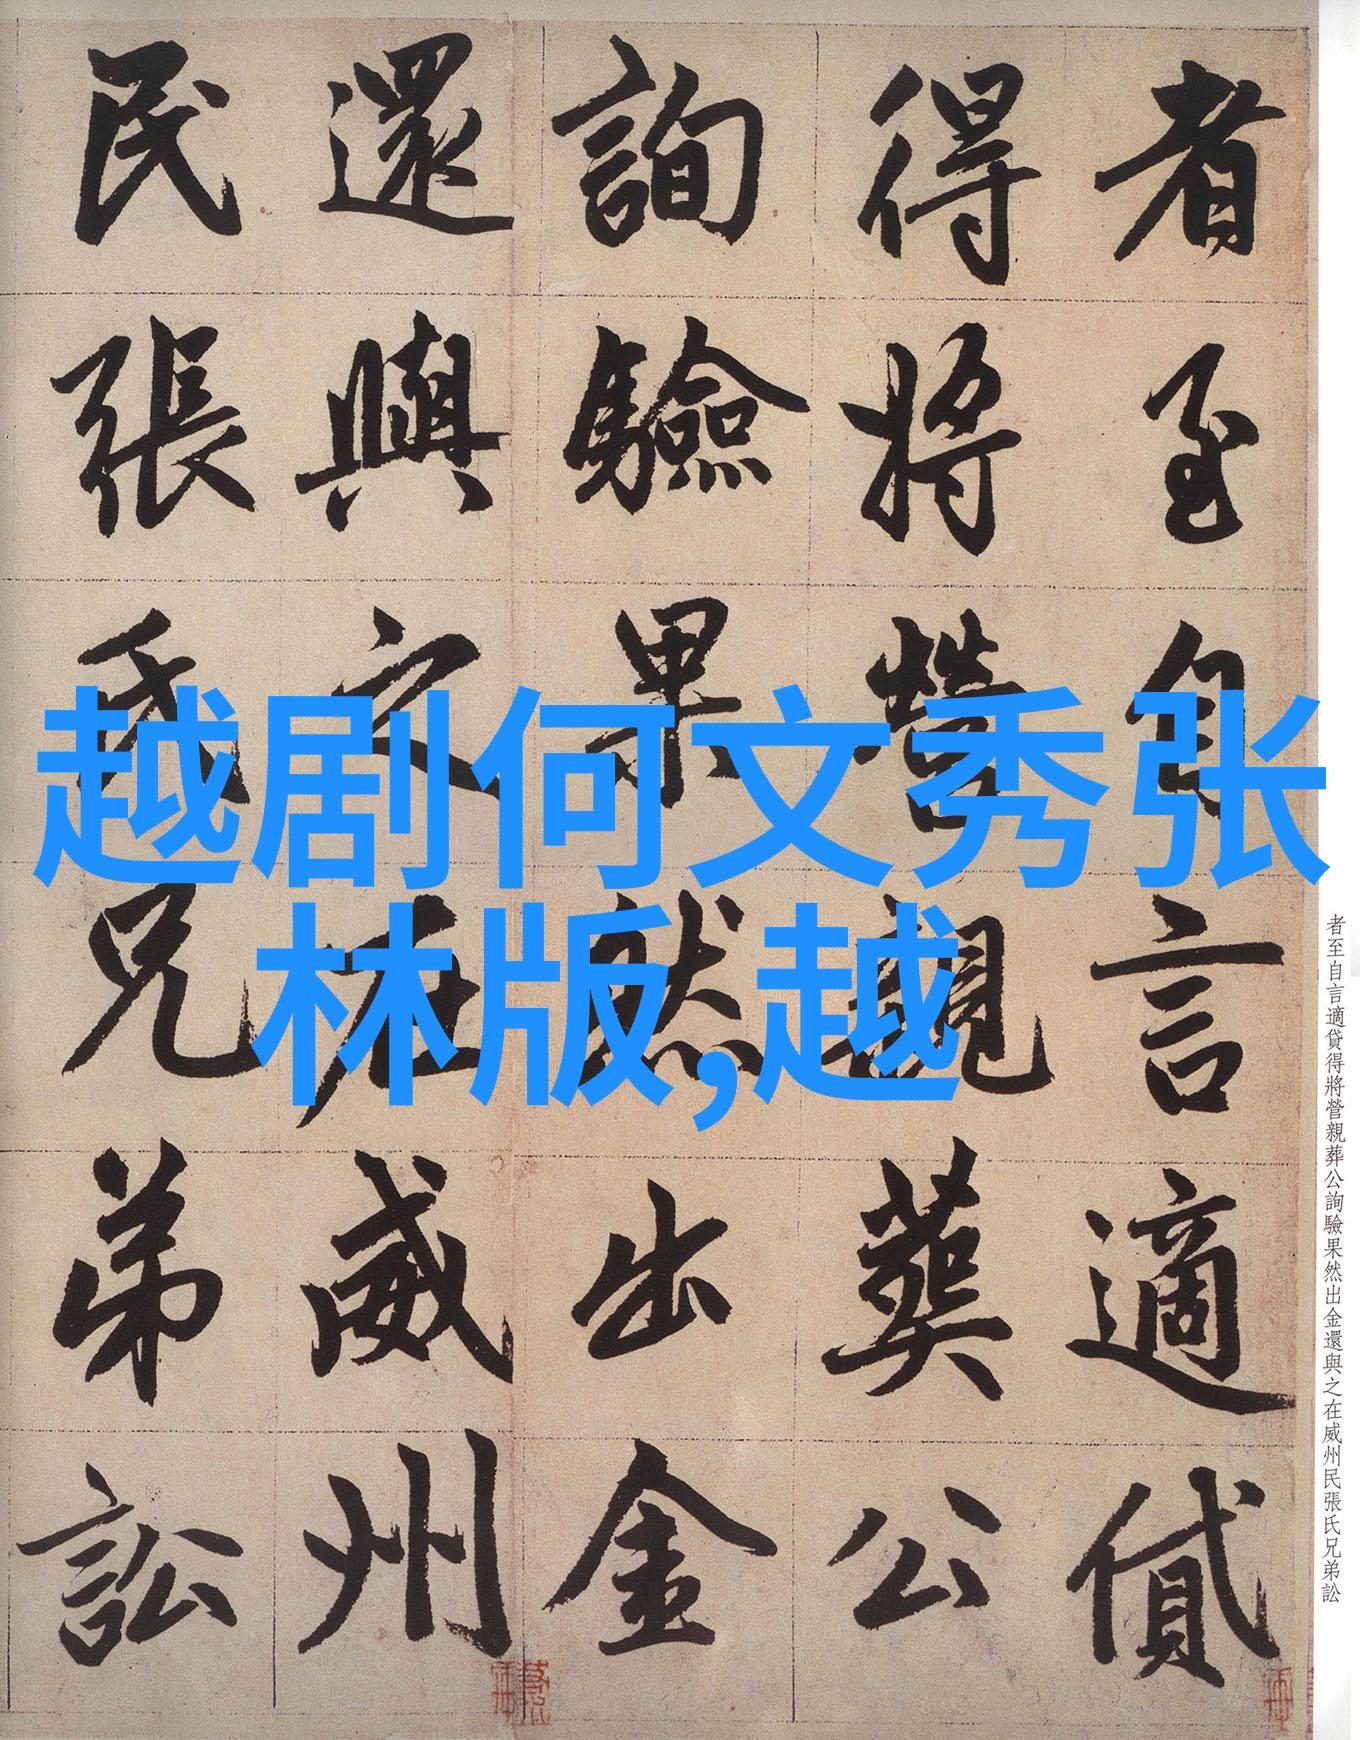 越剧何文秀张
林版,越
者至自言適貸
得將營親葬公
詢驗果然出金
還與之在威州
民張氏兄弟訟
者至自言適貸得將營親葬公詢驗果然出金還與之在威州民張氏兄弟訟